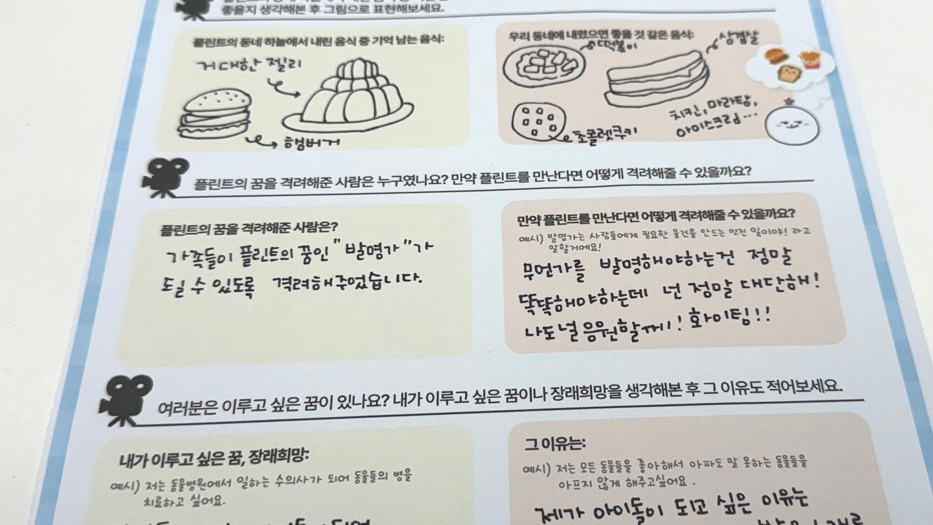 좋을지 생각해본 후 그림으로 표현해보세요.
플린트의 동네 하늘에서 내린 음식 중 기억 남는 음식:
거대한 젤리
햄버거
우리 동네에 내렸으면 좋을 것 같은 음식:
떡볶이
삼겹살
치킨, 마라탕,
아이스크림...
초콜렛쿠키
플린트의 꿈을 격려해준 사람은 누구였나요? 만약 플린트를 만난다면 어떻게 격려해줄 수 있을까요?
플린트의 꿈을 격려해준 사람은?
가족들이 플린트의 꿈인 "발명가"가
되길 수 있도록 격려해주었습니다.
만약 플린트를 만난다면 어떻게 격려해줄 수 있을까요?
예시) 발명가는 사람들에게 필요한 물건을 만드는 멋진 일이야! 라고
말할거에요!
무언가를 발명해야하는건 정말
똑똑해야하는데 넌 정말 대단해!
나도 널 응원할께! 화이팅!!
여러분은 이루고 싶은 꿈이 있나요? 내가 이루고 싶은 꿈이나 장래희망을 생각해본 후 그 이유도 적어보세요.
내가 이루고 싶은 꿈, 장래희망:
예시) 저는 동물병원에서 일하는 수의사가 되어 동물들의 병을
치료하고 싶어요.
그 이유는:
예시) 저는 모든 동물들을 좋아해서 아파도 말 못하는 동물들을
아프지 않게 해주고싶어요.
제가 아이돌이 되고 싶은 이유는